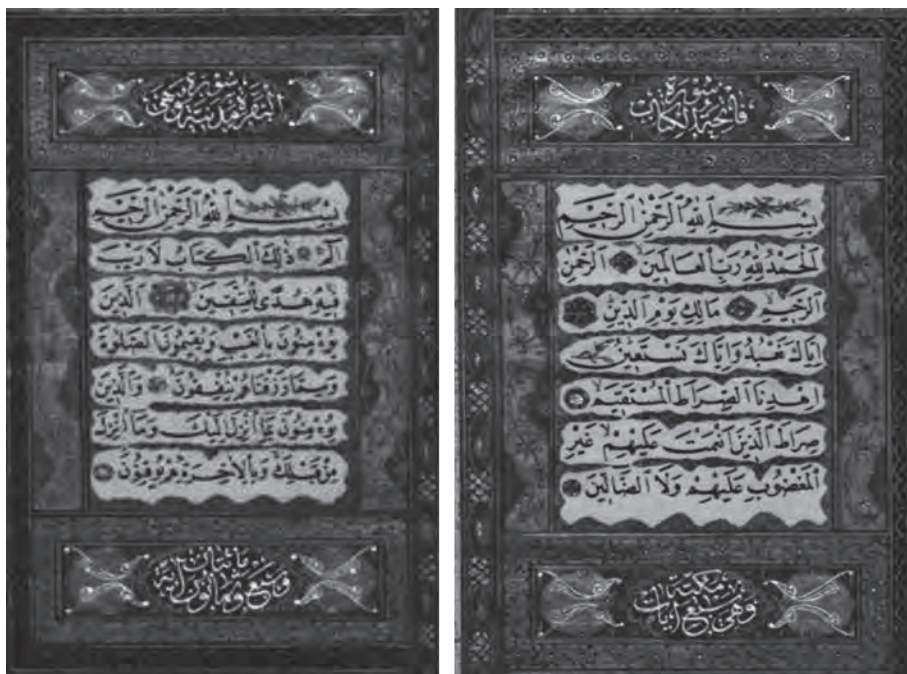 سُورَة
فَاتِحَةُ الْكِتَابِ
بِسْمِ ٱللّٰهِ ٱلرَّحْمٰنِ ٱلرَّحِيمِ
اَلْحَمْدُ لِلّٰهِ رَبِّ الْعَالَمِينَ اَلرَّحْمٰنِ
الرَّحِيمِ مَالِكِ يَوْمِ الدِّينِ
اِيَّاكَ نَعْبُدُ وَاِيَّاكَ نَسْتَعِينُ
اِهْدِنَا الصِّرَاطَ الْمُسْتَقِيمَ
صِرَاطَ الَّذِينَ اَنْعَمْتَ عَلَيْهِمْ غَيْرِ
الْمَغْضُوبِ عَلَيْهِمْ وَلَا الضَّالِّينَ
مَكِّيَّة
وَهِيَ سَبْعُ اٰيَاتٍ
سُورَة
الْبَقَرَة مَدَنِيَّة وَهِيَ
بِسْمِ ٱللّٰهِ ٱلرَّحْمٰنِ ٱلرَّحِيمِ
الٓمٓ ذٰلِكَ الْكِتَابُ لَا رَيْبَ
فِيهِ هُدًى لِلْمُتَّقِينَ اَلَّذِينَ
يُؤْمِنُونَ بِالْغَيْبِ وَيُقِيمُونَ الصَّلٰوةَ
وَمِمَّا رَزَقْنَاهُمْ يُنْفِقُونَ وَالَّذِينَ
يُؤْمِنُونَ بِمَا اُنْزِلَ اِلَيْكَ وَمَا اُنْزِلَ
مِنْ قَبْلِكَ وَبِالْاٰخِرَةِ هُمْ يُوقِنُونَ
مِائَتَانِ
وَسَبْع وَثَمَانُونَ اٰيَة